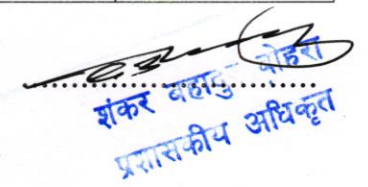 शंकर बहादुर बोहरा
प्रशासकीय अधिकृत